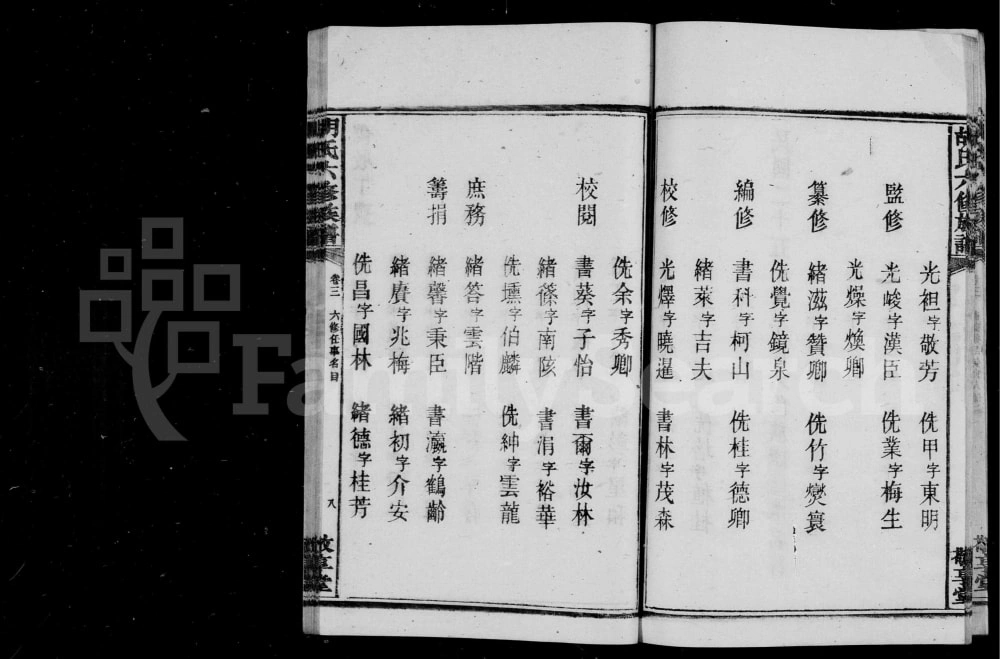 胡氏六修族譜
敬享堂
光袒字敬芳 侁甲字東明
監修 光峻字漢臣 侁業字梅生
光燥字煥卿
纂修 緒滋字贊卿 侁竹字爕寰
侁覺字鏡泉
編修 書科字柯山 侁桂字德卿
緒萊字吉夫
校修 光燡字曉暹 書林字茂森
侁余字秀卿
校閱 書葵字子怡 書爾字汝林
緒篠字南陔 書涓字裕華
侁壎字伯麟 侁紳字雲龍
庶務 緒答字雲階
籌捐 緒馨字秉臣 書瀛字鶴齡
緒賡字兆梅 緒初字介安
侁昌字國林 緒德字桂芳
胡氏六修族譜
卷三 六修任事名目
八
敬享堂
FamilySearch